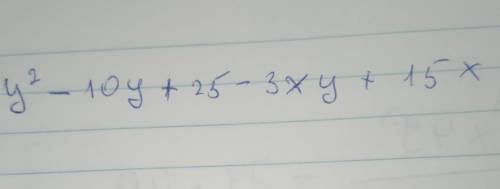 y² - 10y + 25 - 3xy + 15x